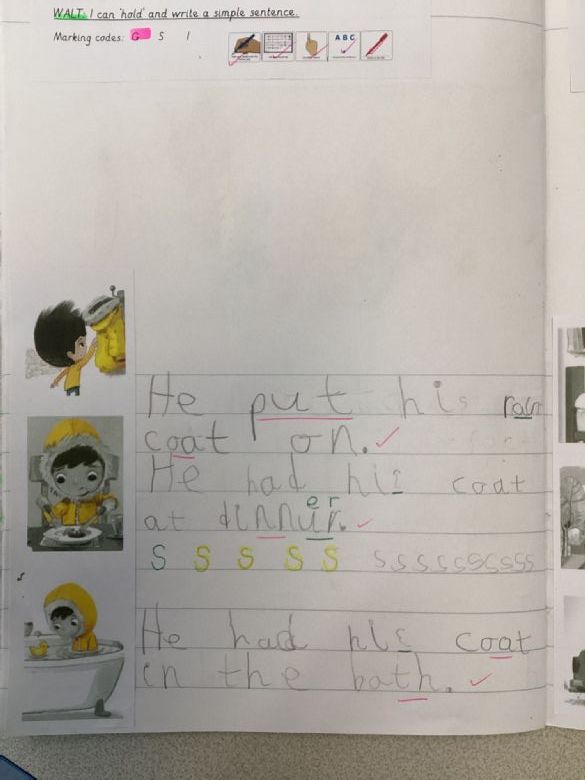 WALT: I can 'hold' and write a simple sentence.
Marking codes: G S I
ABC
He put his rain
coat on.
He had his coat
er
at dinnur.
S S S S S s s s s s s s s s s
He had his coat
in the bath.